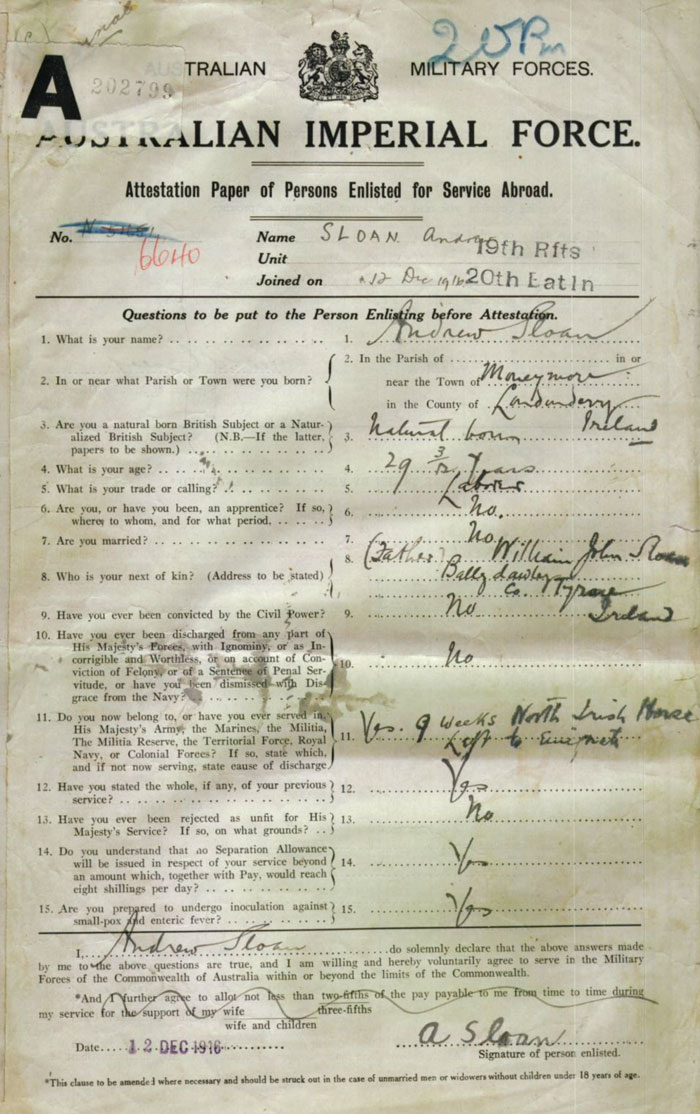 A
202799
AUSTRALIAN MILITARY FORCES.
AUSTRALIAN IMPERIAL FORCE.
Attestation Paper of Persons Enlisted for Service Abroad.
No. 6640
Name SLOAN Andrew
Unit 19th Rfts
Joined on 12 Dec 1916 20th Batln
Questions to be put to the Person Enlisting before Attestation.
1. What is your name? 1. Andrew Sloan
2. In or near what Parish or Town were you born? 2. In the Parish of in or
near the Town of Moneymore
in the County of Londonderry
Ireland
3. Are you a natural born British Subject or a Natur-
alized British Subject? (N.B.—If the latter,
papers to be shown.) 3. Natural born
4. What is your age? 4. 29 3/12 Years
5. What is your trade or calling? 5. Laborer
6. Are you, or have you been, an apprentice? If so,
where, to whom, and for what period, 6. No.
7. Are you married? 7. No.
8. Who is your next of kin? (Address to be stated) 8. (Father) William John Sloan
Co. Tyrone
Ireland
9. Have you ever been convicted by the Civil Power? 9. No
10. Have you ever been discharged from any part of
His Majesty's Forces, with Ignominy, or as In-
corrigible and Worthless, or on account of Con-
viction of Felony, or of a Sentence of Penal Ser-
vitude, or have you been dismissed with Dis-
grace from the Navy? 10. No
11. Do you now belong to, or have you ever served in,
His Majesty's Army, the Marines, the Militia,
The Militia Reserve, the Territorial Force, Royal
Navy, or Colonial Forces? If so, state which,
and if not now serving, state cause of discharge 11. Yes. 9 weeks North Irish Horse
Left to Emigrate
12. Have you stated the whole, if any, of your previous
service? 12. Yes
13. Have you ever been rejected as unfit for His
Majesty's Service? If so, on what grounds? 13. No
14. Do you understand that no Separation Allowance
will be issued in respect of your service beyond
an amount which, together with Pay, would reach
eight shillings per day? 14. Yes
15. Are you prepared to undergo inoculation against
small-pox and enteric fever? 15. Yes
I, Andrew Sloan do solemnly declare that the above answers made
by me to the above questions are true, and I am willing and hereby voluntarily agree to serve in the Military
Forces of the Commonwealth of Australia within or beyond the limits of the Commonwealth.
*And I further agree to allot not less than two-fifths of the pay payable to me from time to time during
three-fifths
my service for the support of my wife
wife and children
Date 12 DEC 1916
A Sloan
Signature of person enlisted.
*This clause to be amended where necessary and should be struck out in the case of unmarried men or widowers without children under 18 years of age.